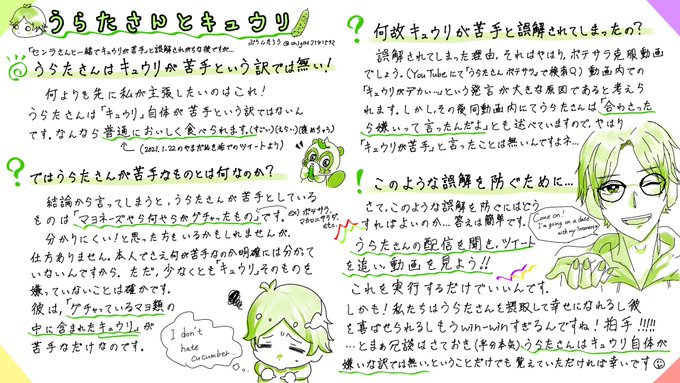 うらたさんとキュウリ
「センラさんと一緒でキュウリが苦手」と誤解されがちな彼ですが…
うらたさんはキュウリが苦手という訳では無い!
何よりも先に私が主張したいのはこれ!
うらたさんは「キュウリ」自体が苦手という訳ではないん
です。なんなら普通においしく食べられます。(すごい)(えらい)(褒めちゃう)
(2021.1.22のやまだぬき宛てのツイートより)
? ではうらたさんが苦手なものとは何なのか?
結論から言ってしまうと、うらたさんが苦手としている
ものは「マヨネーズやら何やらがゲチャったもの」です。
ex) ポテサラ、
マカロニサラダ、
etc.
分かりにくい!と思った方もいるかもしれませんが、
仕方ありません。本人でさえ何が苦手なのか明確には分かって
いないんですから。ただ、少なくとも「キュウリ」そのものを
嫌っていないことは確かです。
彼は、「ゲチャっているマヨ類の
中に含まれたキュウリ」が
苦手なだけなのです。
I don't
hate
cucumber…
? 何故キュウリが苦手と誤解されてしまったの?
誤解されてしまった理由。それはやはり、ポテサラ克服動画
でしょう。(YouTubeにて「うらたさん ポテサラ」で検索) 動画内での
「キュウリがデカい…」という発言が大きな原因であると考えら
れます。しかし、その後同動画内にてうらたさんは「合わさった
ら嫌いって言ったんだよ」とも述べていますので、やはり
「キュウリが苦手」と言ったことは無いんですよネ…
! このような誤解を防ぐために…
さて、このような誤解を防ぐにはどう
すればよいのか… 答えは簡単です。
うらたさんの配信を聞き、ツイート
を追い、動画を見よう!!
これを実行するだけでいいんです。
しかも!私たちはうらたさんを摂取して幸せになれるし彼
を喜ばせられるしもうwin-winすぎるんですね!拍手!!!!!
…とまぁ冗談はさておき(半分本気)、うらたさんはキュウリ自体が
嫌いな訳では無いということだけでも覚えていただければ幸いです
Come on!
I'm going on a date
with my listeners